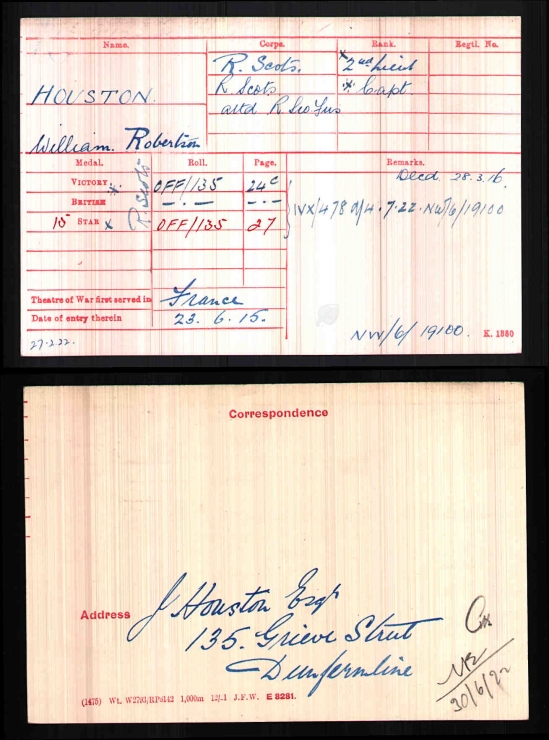 Name. Corps. Rank. Regtl. No.
R. Scots. x 2nd Lieut
HOUSTON. R Scots * Capt
attd R Sco Fus
William Robertson
Medal. Roll. Page. Remarks.
Decd. 28.3.16.
VICTORY * R. Scots OFF/135 24C
BRITISH —.— —.—
IVX/478 d/4.7.22. NW/6/19100
15 STAR x OFF/135 27
Theatre of War first served in France
Date of entry therein 23. 6. 15.
27.2.22. NW/6/19100. K. 1380
Correspondence
Address J Houston Esqr
135. Grieve Street
Dunfermline
30/6/22
(1475) Wt. W2793/RP8142 1,000m 12/.1 J.F.W. E 8281.